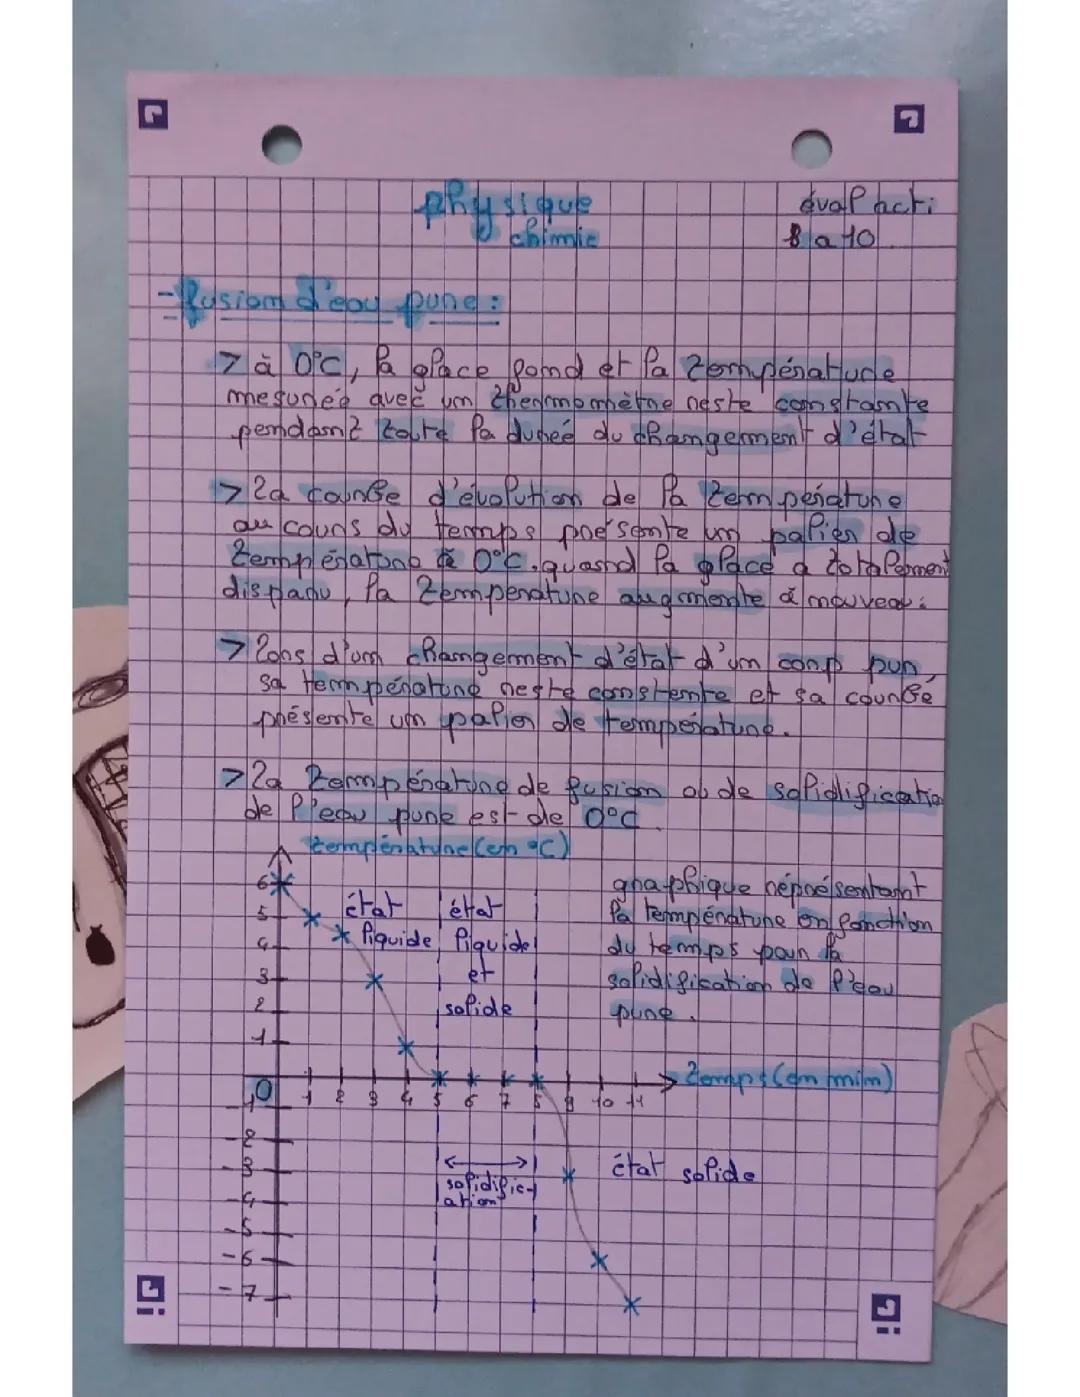 physique
chimie
éval acti
8 a 10
- fusion d'eau pure :
> à 0°C, la glace fond et la température
mesurée avec un thermomètre reste constante
pendant toute la durée du changement d'état
> La courbe d'évolution de la température
au cours du temps présente un palier de
température à 0°C. quand la glace a totalement
disparu, la température augmente à nouveau.
> Lors d'un changement d'état d'un corp pur,
sa température reste constente et sa courbe
présente un palier de température.
> La température de fusion ou de solidification
de l'eau pure est de 0°C.
température (en °C)
6
5
4
3
2
1
0
-1
-2
-3
-4
-5
-6
-7
état
liquide
état
liquide
et
solide
graphique réprésentant
la température en fonction
du temps pour la
solidification de l'eau
pure.
1 2 3 4 5 6 7 8 9 10 11
Temps (en min)
solidific-
ation
état solide